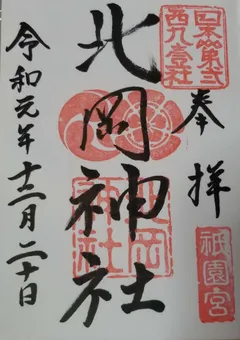 奉拝
日本第弐
西九壹社
祇園宮
北岡神社
北岡
神社
令和元年十二月二十日